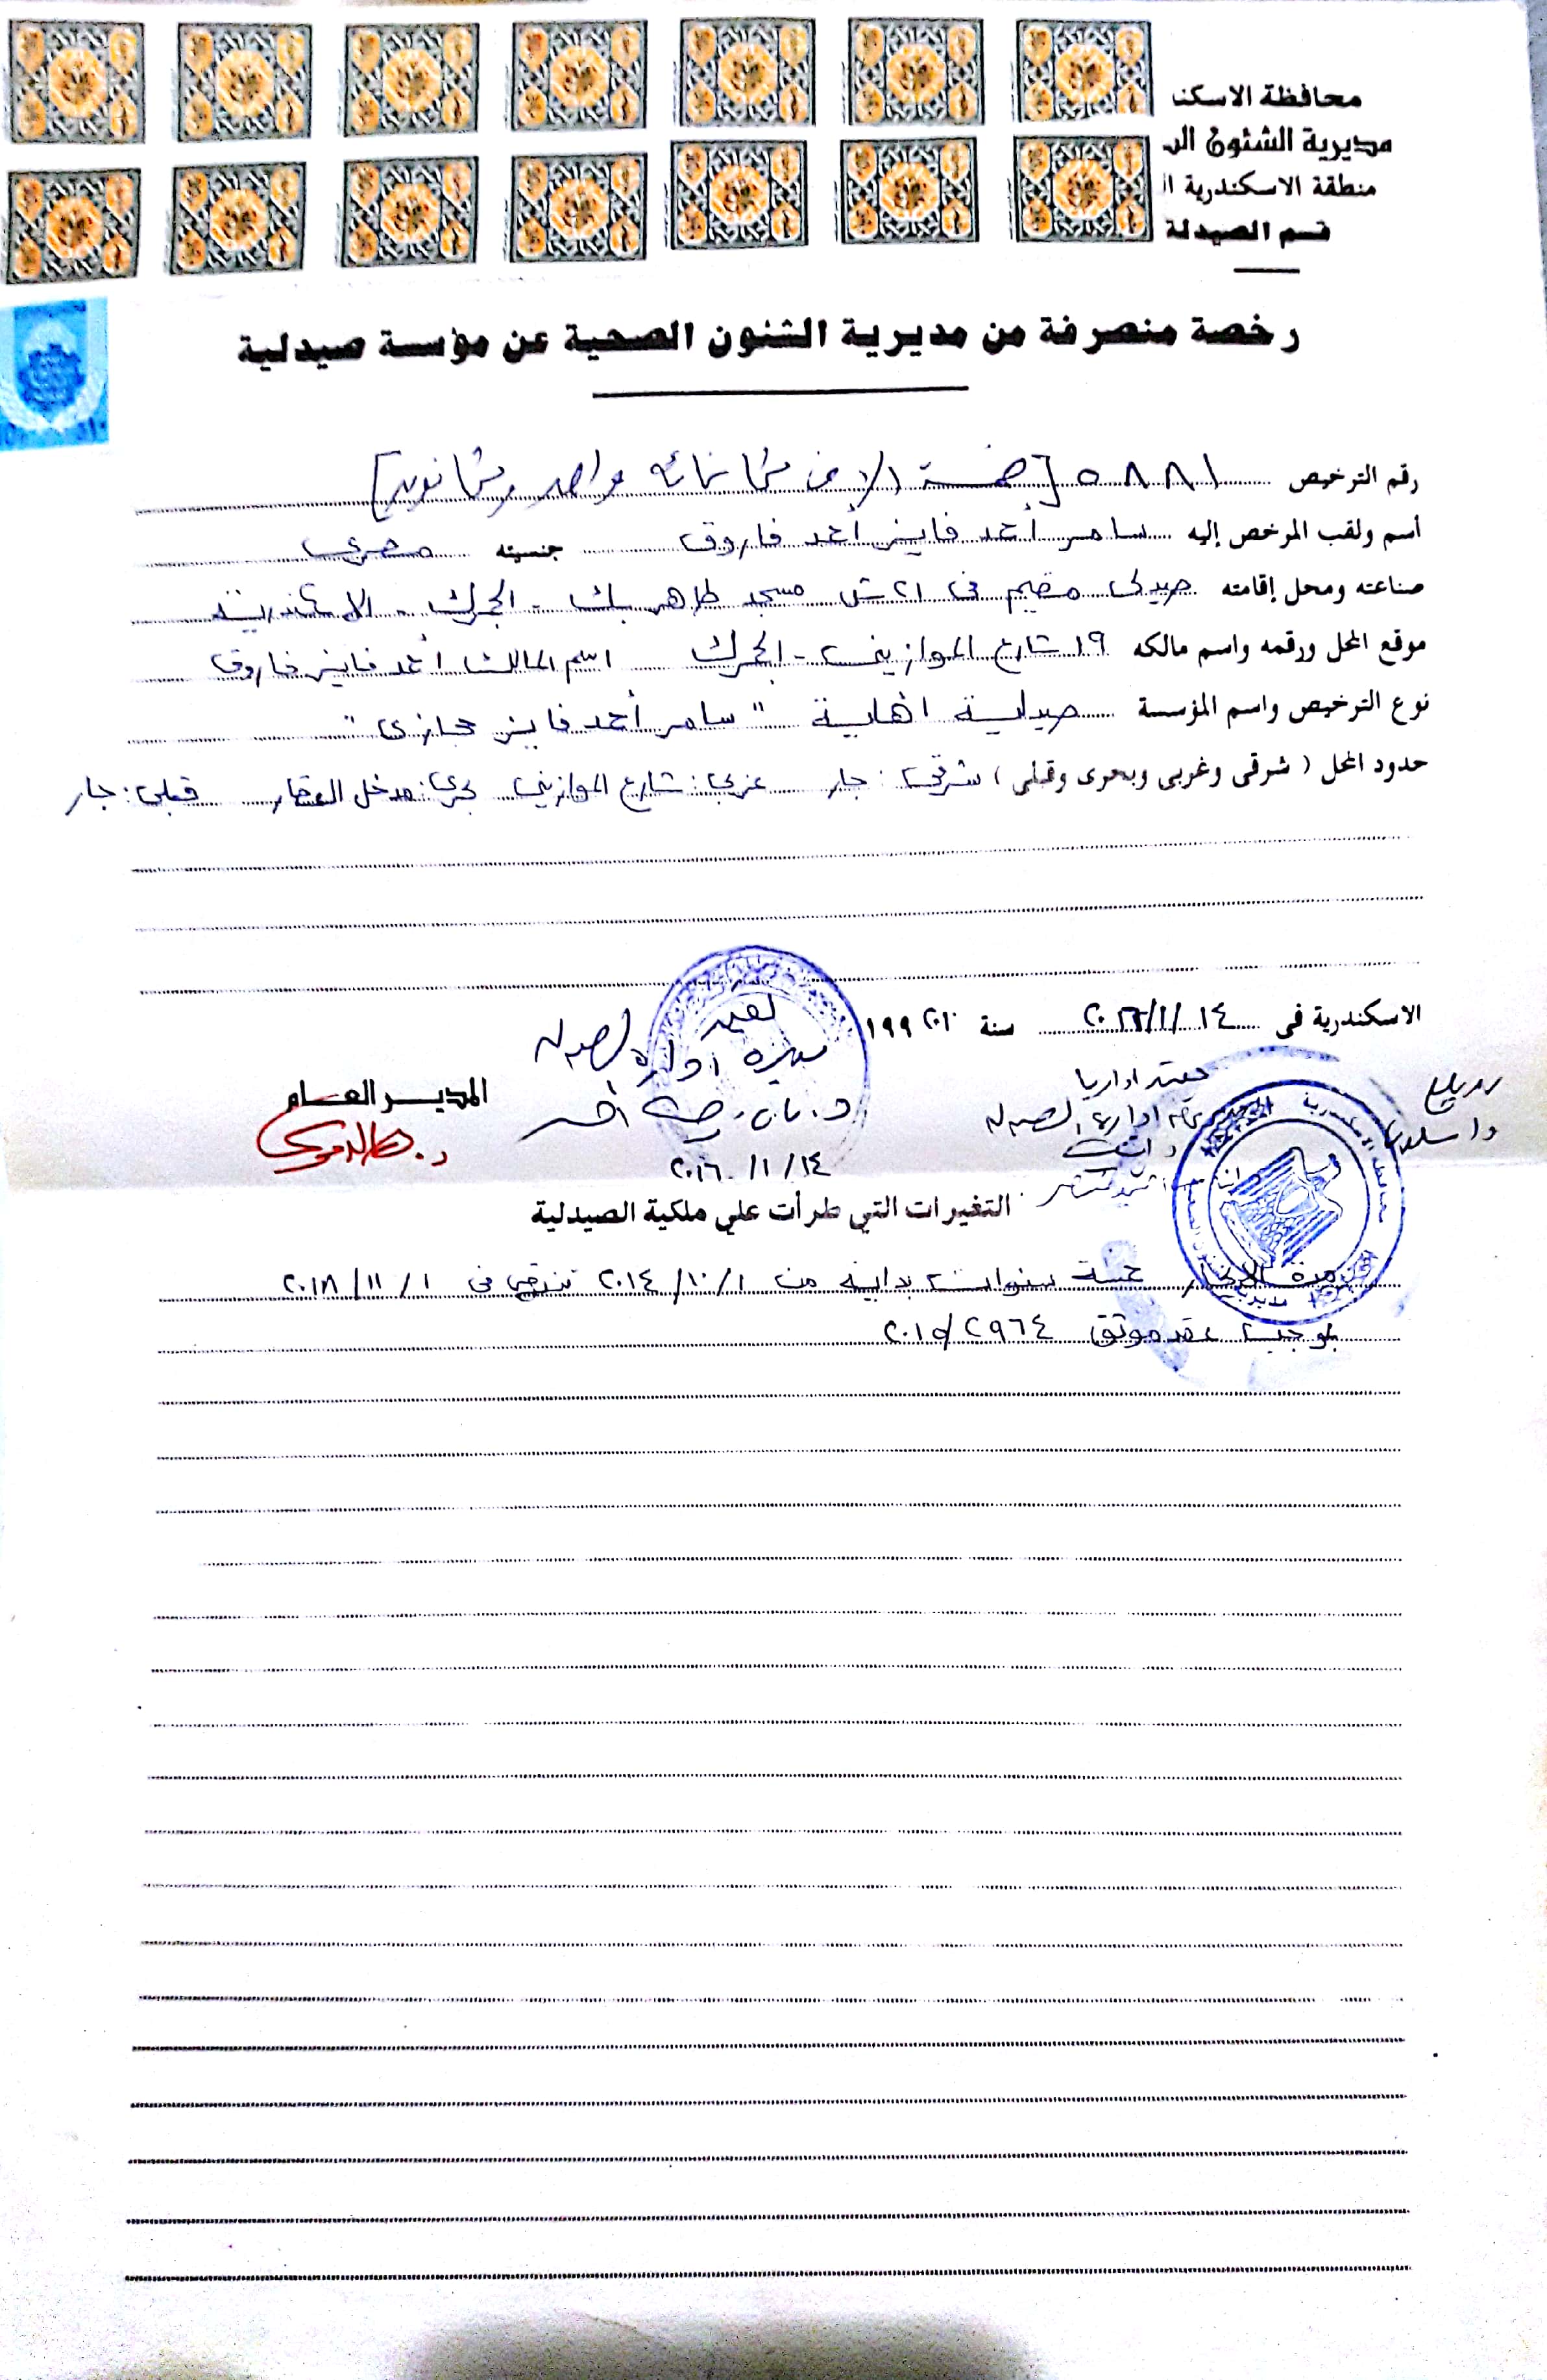 محافظة الاسكنـ
مديرية الشئون الـ
منطقة الاسكندرية ا
قسم الصيدلة
رخصة منصرفة من مديرية الشئون الصحية عن مؤسسة صيدلية
رقم الترخيص ٥٨٨١ [خمسة الاف ثمانمائه واحد وثمانون]
أسم ولقب المرخص إليه سامر أحمد فايز أحمد فاروق جنسيته مصرى
صناعته ومحل إقامته صيدلى مقيم فى ٢١ ش مسجد طاهر بك - الجمرك - الاسكندرية
موقع المحل ورقمه واسم مالكه ١٩ شارع الموازينى - الجمرك اسم المالك أحمد فايز فاروق
نوع الترخيص واسم المؤسسة صيدلية اهلية " سامر أحمد فايز حجازى "
حدود المحل ( شرقى وغربى وبحرى وقبلى ) شرقى : جار غربى : شارع الموازينى بحرى : مدخل العقار قبلى : جار
الاسكندرية فى ١٤/١/٢٠١٦ سنة ١٩٩
يعتمد
مديرة ادارة الصيدلة
١٤/١/٢٠١٦
يعتمد اداريا
ادارة الصيدلة
المديـر العـام
التغيرات التي طرأت علي ملكية الصيدلية
مدة الايجار خمسة سنوات بداية من ١/١٠/٢٠١٤ تنتهى فى ١/١١/٢٠١٨
بموجب عقد موثق ٢٩٦٤/٢٠١٥